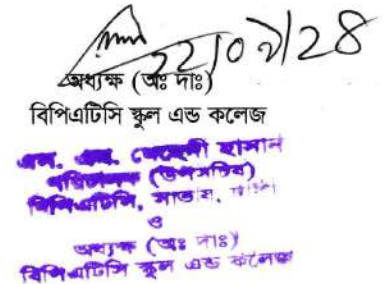 ২২/০৭/২৪
অধ্যক্ষ (অঃ দাঃ)
বিপিএটিসি স্কুল এন্ড কলেজ
এস. এম. মেহেদী হাসান
পরিচালক (উপসচিব)
বিপিএটিসি, সাভার, ঢাকা
ও
অধ্যক্ষ (অঃ দাঃ)
বিপিএটিসি স্কুল এন্ড কলেজ